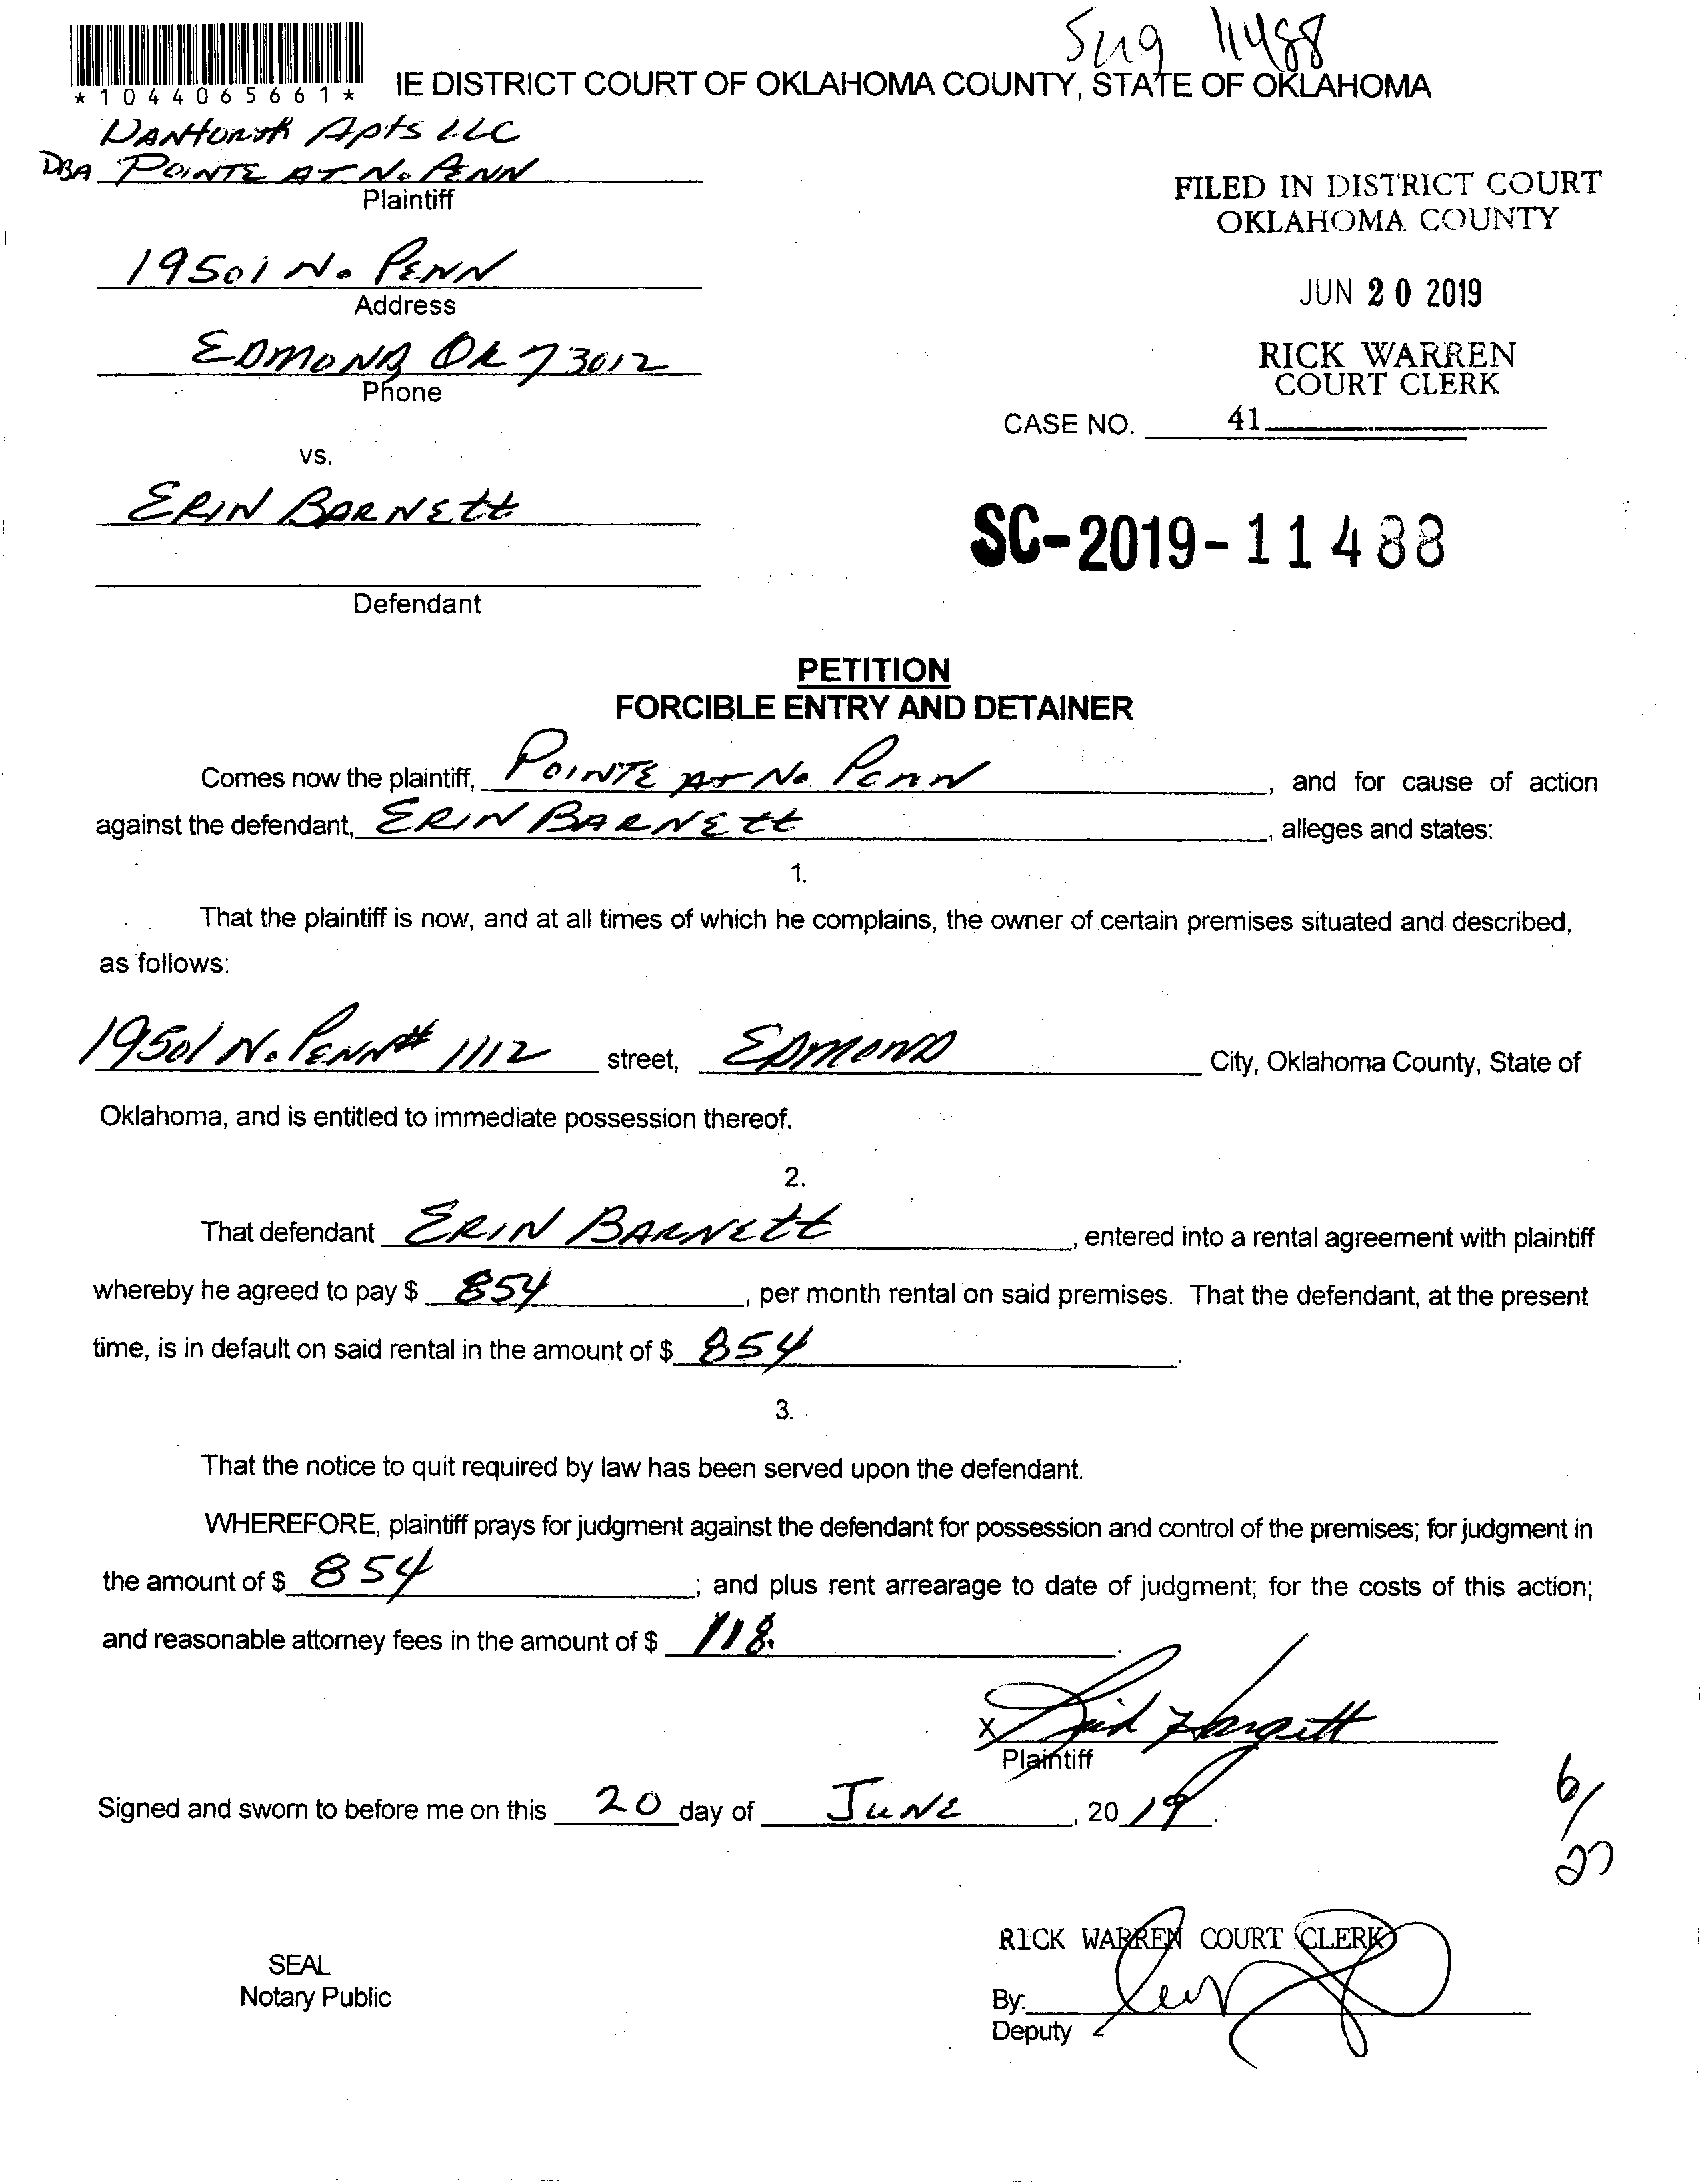 Sug 11488
*1044065661*
IE DISTRICT COURT OF OKLAHOMA COUNTY, STATE OF OKLAHOMA
DANFORTH Apts LLC
DBA POINTE AT N. PENN
Plaintiff
FILED IN DISTRICT COURT
OKLAHOMA COUNTY
19501 N. PENN
Address
JUN 20 2019
EDMOND OK 73012
Phone
RICK WARREN
COURT CLERK
CASE NO. 41
vs.
ERIN BARNETT
SC-2019-11488
Defendant
PETITION
FORCIBLE ENTRY AND DETAINER
Comes now the plaintiff, POINTE AT No PENN, and for cause of action
against the defendant, ERIN BARNETT, alleges and states:
1.
That the plaintiff is now, and at all times of which he complains, the owner of certain premises situated and described,
as follows:
19501 N. PENN # 1112 street, EDMOND City, Oklahoma County, State of
Oklahoma, and is entitled to immediate possession thereof.
2.
That defendant ERIN BARNETT, entered into a rental agreement with plaintiff
whereby he agreed to pay $ 854, per month rental on said premises. That the defendant, at the present
time, is in default on said rental in the amount of $ 854.
3.
That the notice to quit required by law has been served upon the defendant.
WHEREFORE, plaintiff prays for judgment against the defendant for possession and control of the premises; for judgment in
the amount of $ 854; and plus rent arrearage to date of judgment; for the costs of this action;
and reasonable attorney fees in the amount of $ 118.
X Hargett
Plaintiff
Signed and sworn to before me on this 20 day of JUNE, 2019.
6/27
RICK WARREN COURT CLERK
SEAL
Notary Public
By:
Deputy